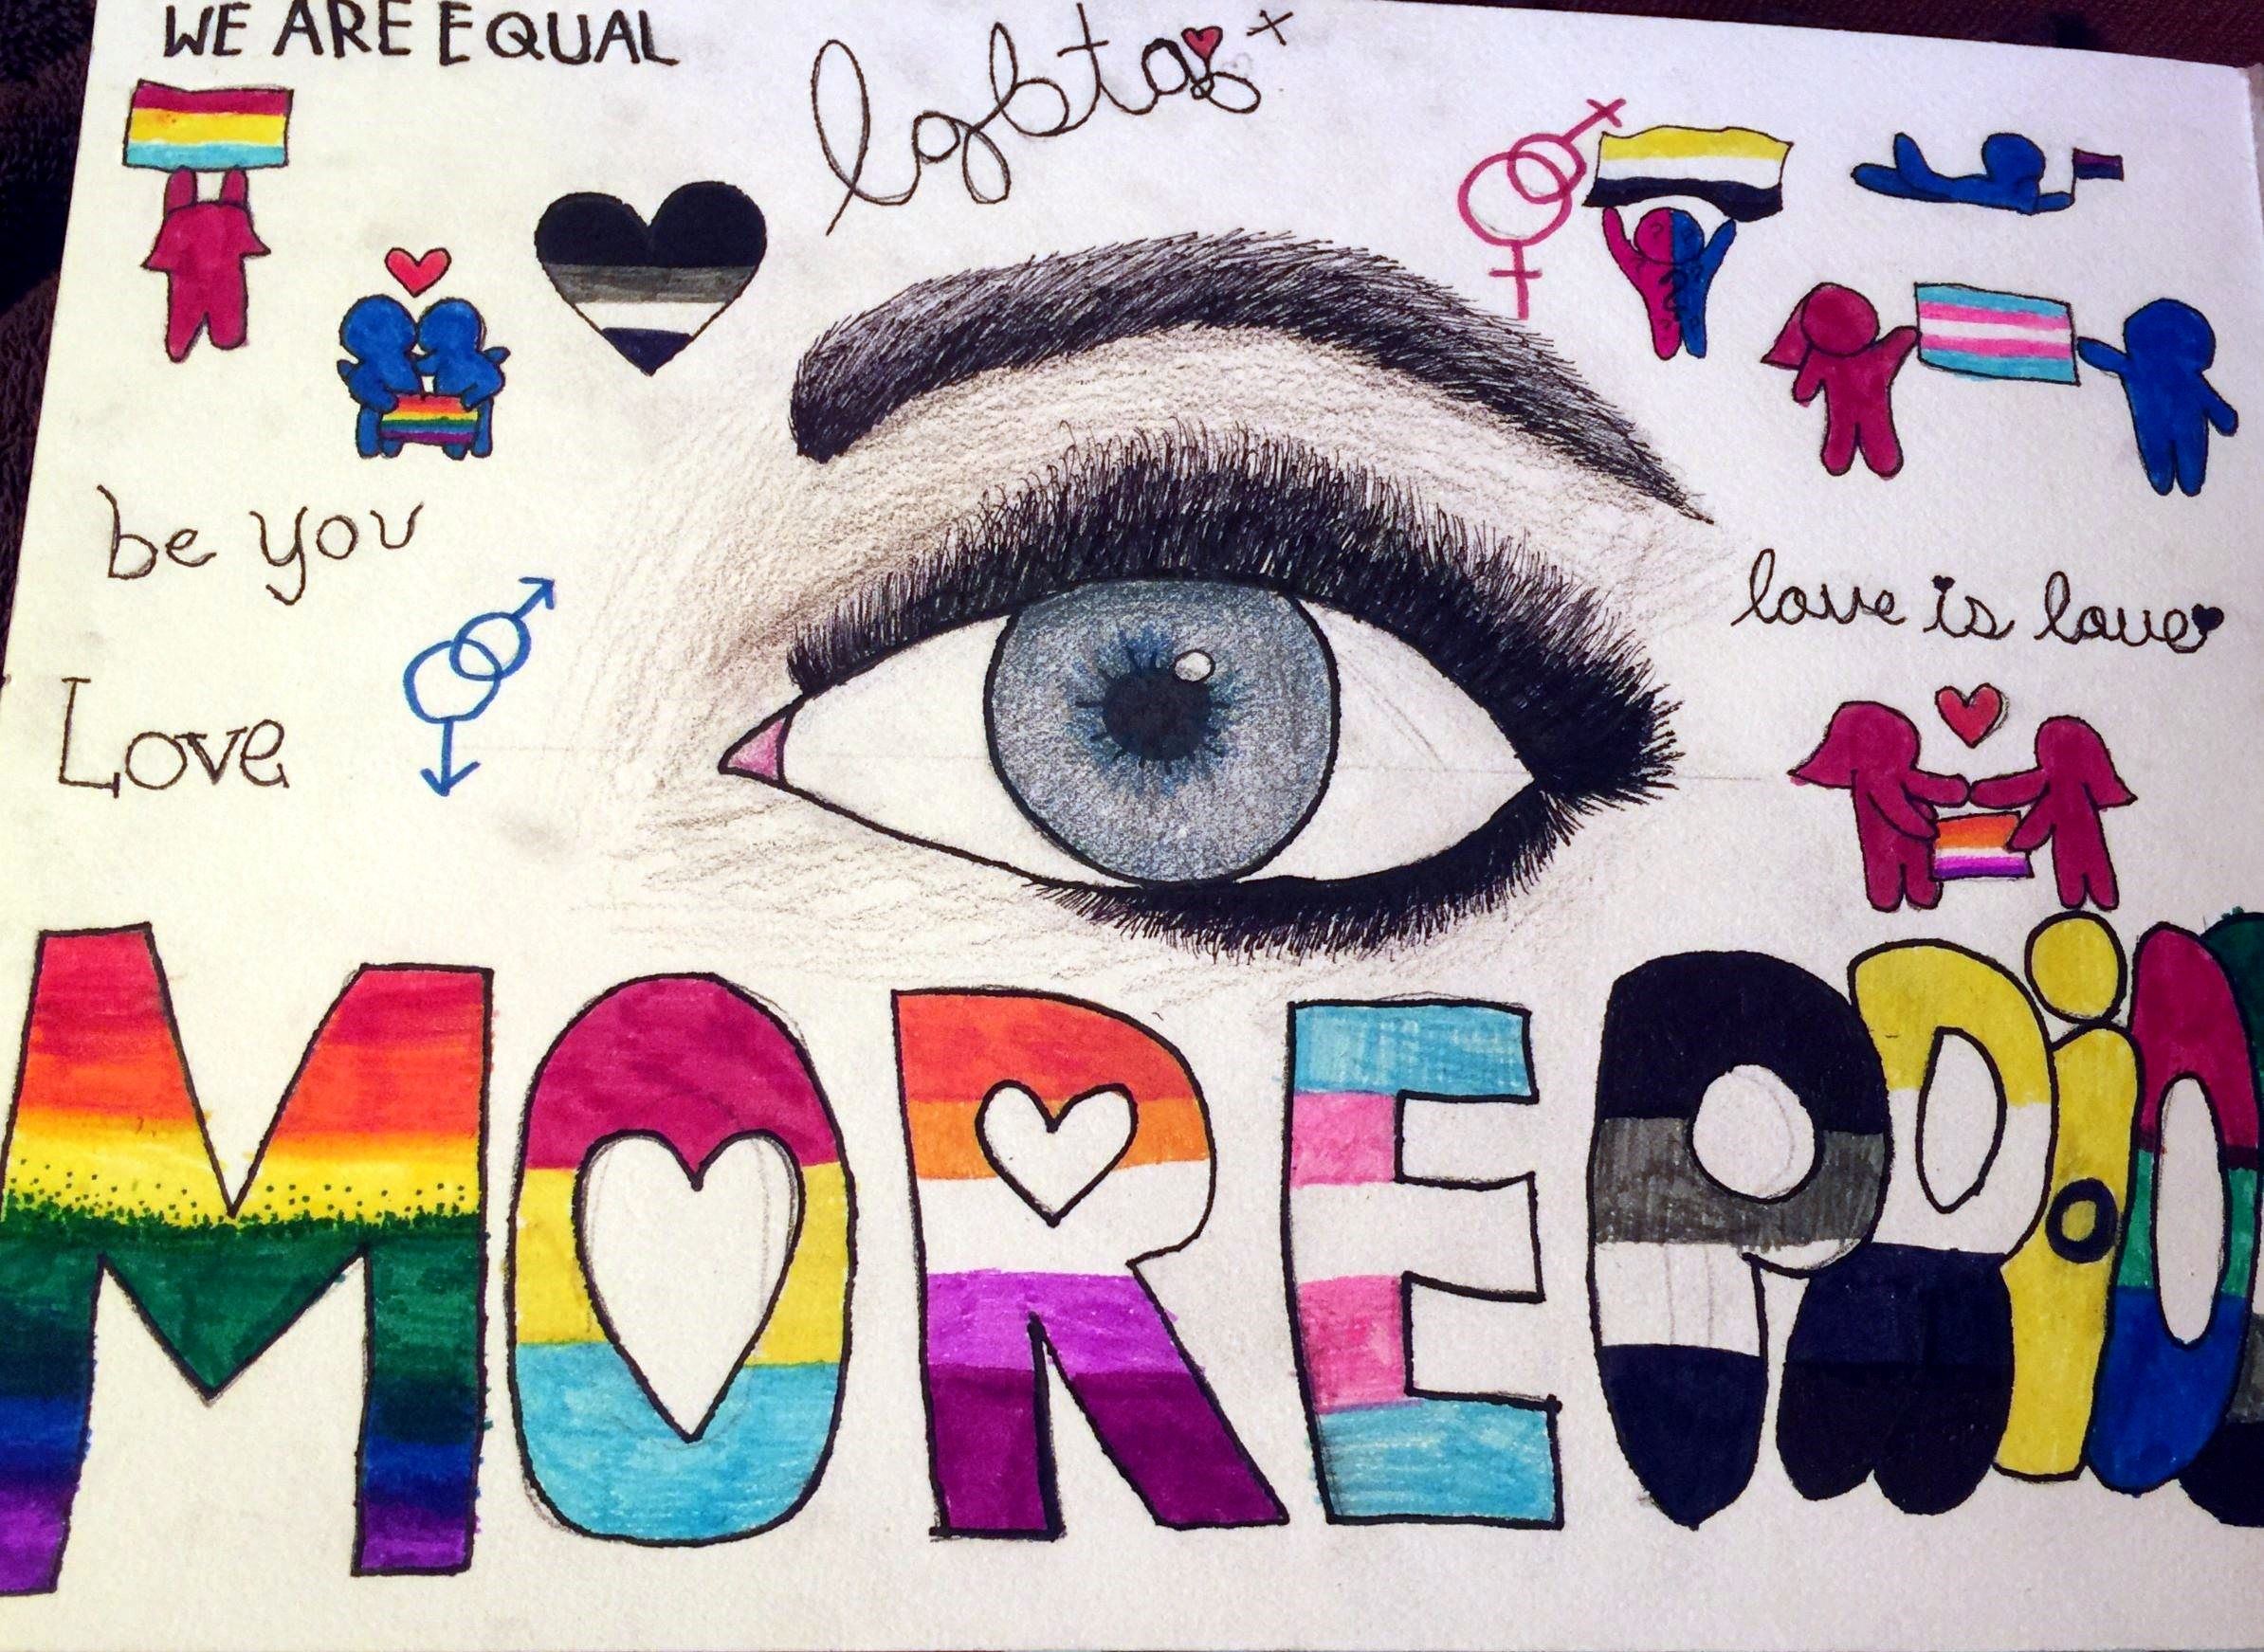 WE ARE EQUAL
lgbtq+
be you
Love
love is love
MORE PRiD